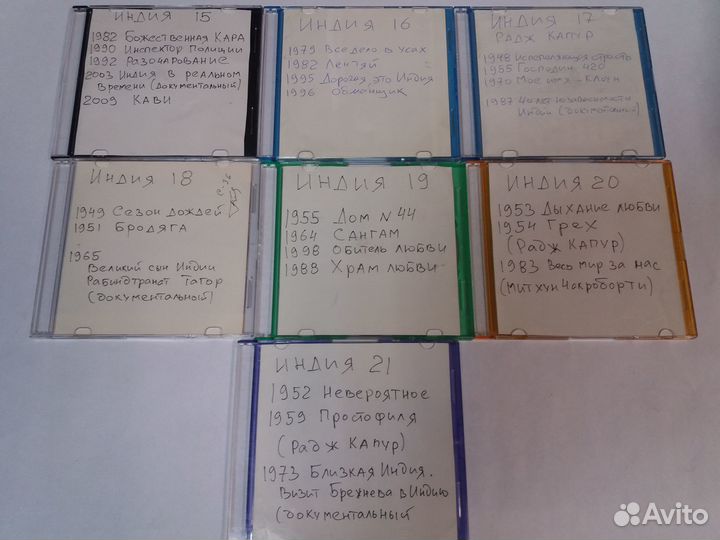 ИНДИЯ 15
1982 Божественная КАРА
1990 Инспектор Полиции
1992 Разочарование
2003 Индия в реальном
Времени (документальный)
2009 КАВИ
ИНДИЯ 16
1979 Все дело в усах
1982 Лентяй
1995 Дорогая это Индия
1996 Обманщик
ИНДИЯ 17
РАДЖ КАПУР
1948 Испепеляющая страсть
1955 Господин 420
1970 Мое имя - Клоун
1987 40 лет независимости
Индии (документальный)
ИНДИЯ 18
1949 Сезон дождей
1951 БРОДЯГА
1965
Великий сын Индии
Рабиндранат Тагор
(документальный)
ИНДИЯ 19
1955 Дом N 44
1964 САНГАМ
1998 Обитель любви
1988 Храм любви
ИНДИЯ 20
1953 Дыхание любви
1954 Грех
(Радж КАПУР)
1983 Весь мир за нас
(Митхун Чакроборти)
ИНДИЯ 21
1952 Невероятное
1959 Простофиля
(Радж Капур)
1973 Близкая Индия.
Визит Брежнева в Индию
(документальный
Avito